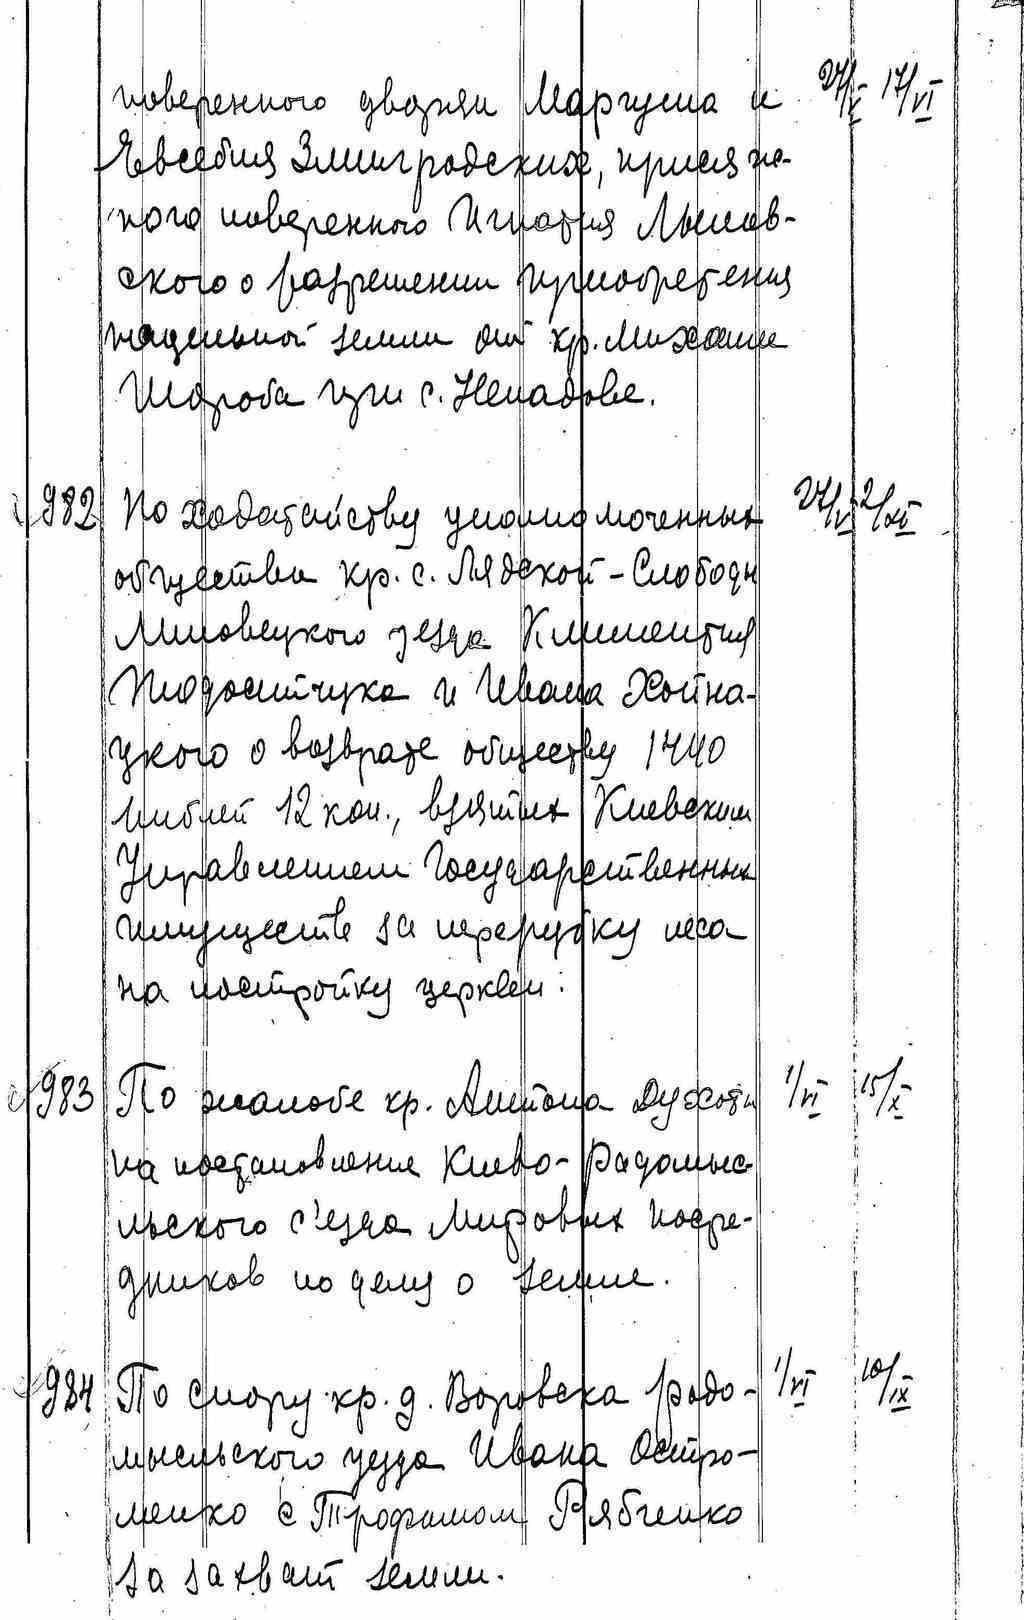 поверенного дворян Маргуша и 27/V 17/VI
Евсебия Злингродских, присяж-
ного поверенного Игнатия Лысов-
ского о разрешении приобретения
надельной земли от кр. Михаила
Шароба при с. Ненадове.
982 По ходатайству уполномоченных 27/V 2/XII
общества кр. с. Лядской-Слободы
Липовецкого уезда Климентия
и Ивана Хойна-
цкого о возврате обществу 1440
рублей 12 коп., взятых Киевским
Управлением Государственных
имуществ за перерубку леса
на постройку церкви.
983 По жалобе кр. Антона Духоты 1/VI 15/X
на постановление Киево-Радомыс-
льского с'езда Мировых посре-
дников по делу о земле.
984 По спору кр. д. Воровска Радо- 1/VI 10/IX
мысльского уезда Ивана Остро-
менко с Трофимом Рябченко
за захват земли.